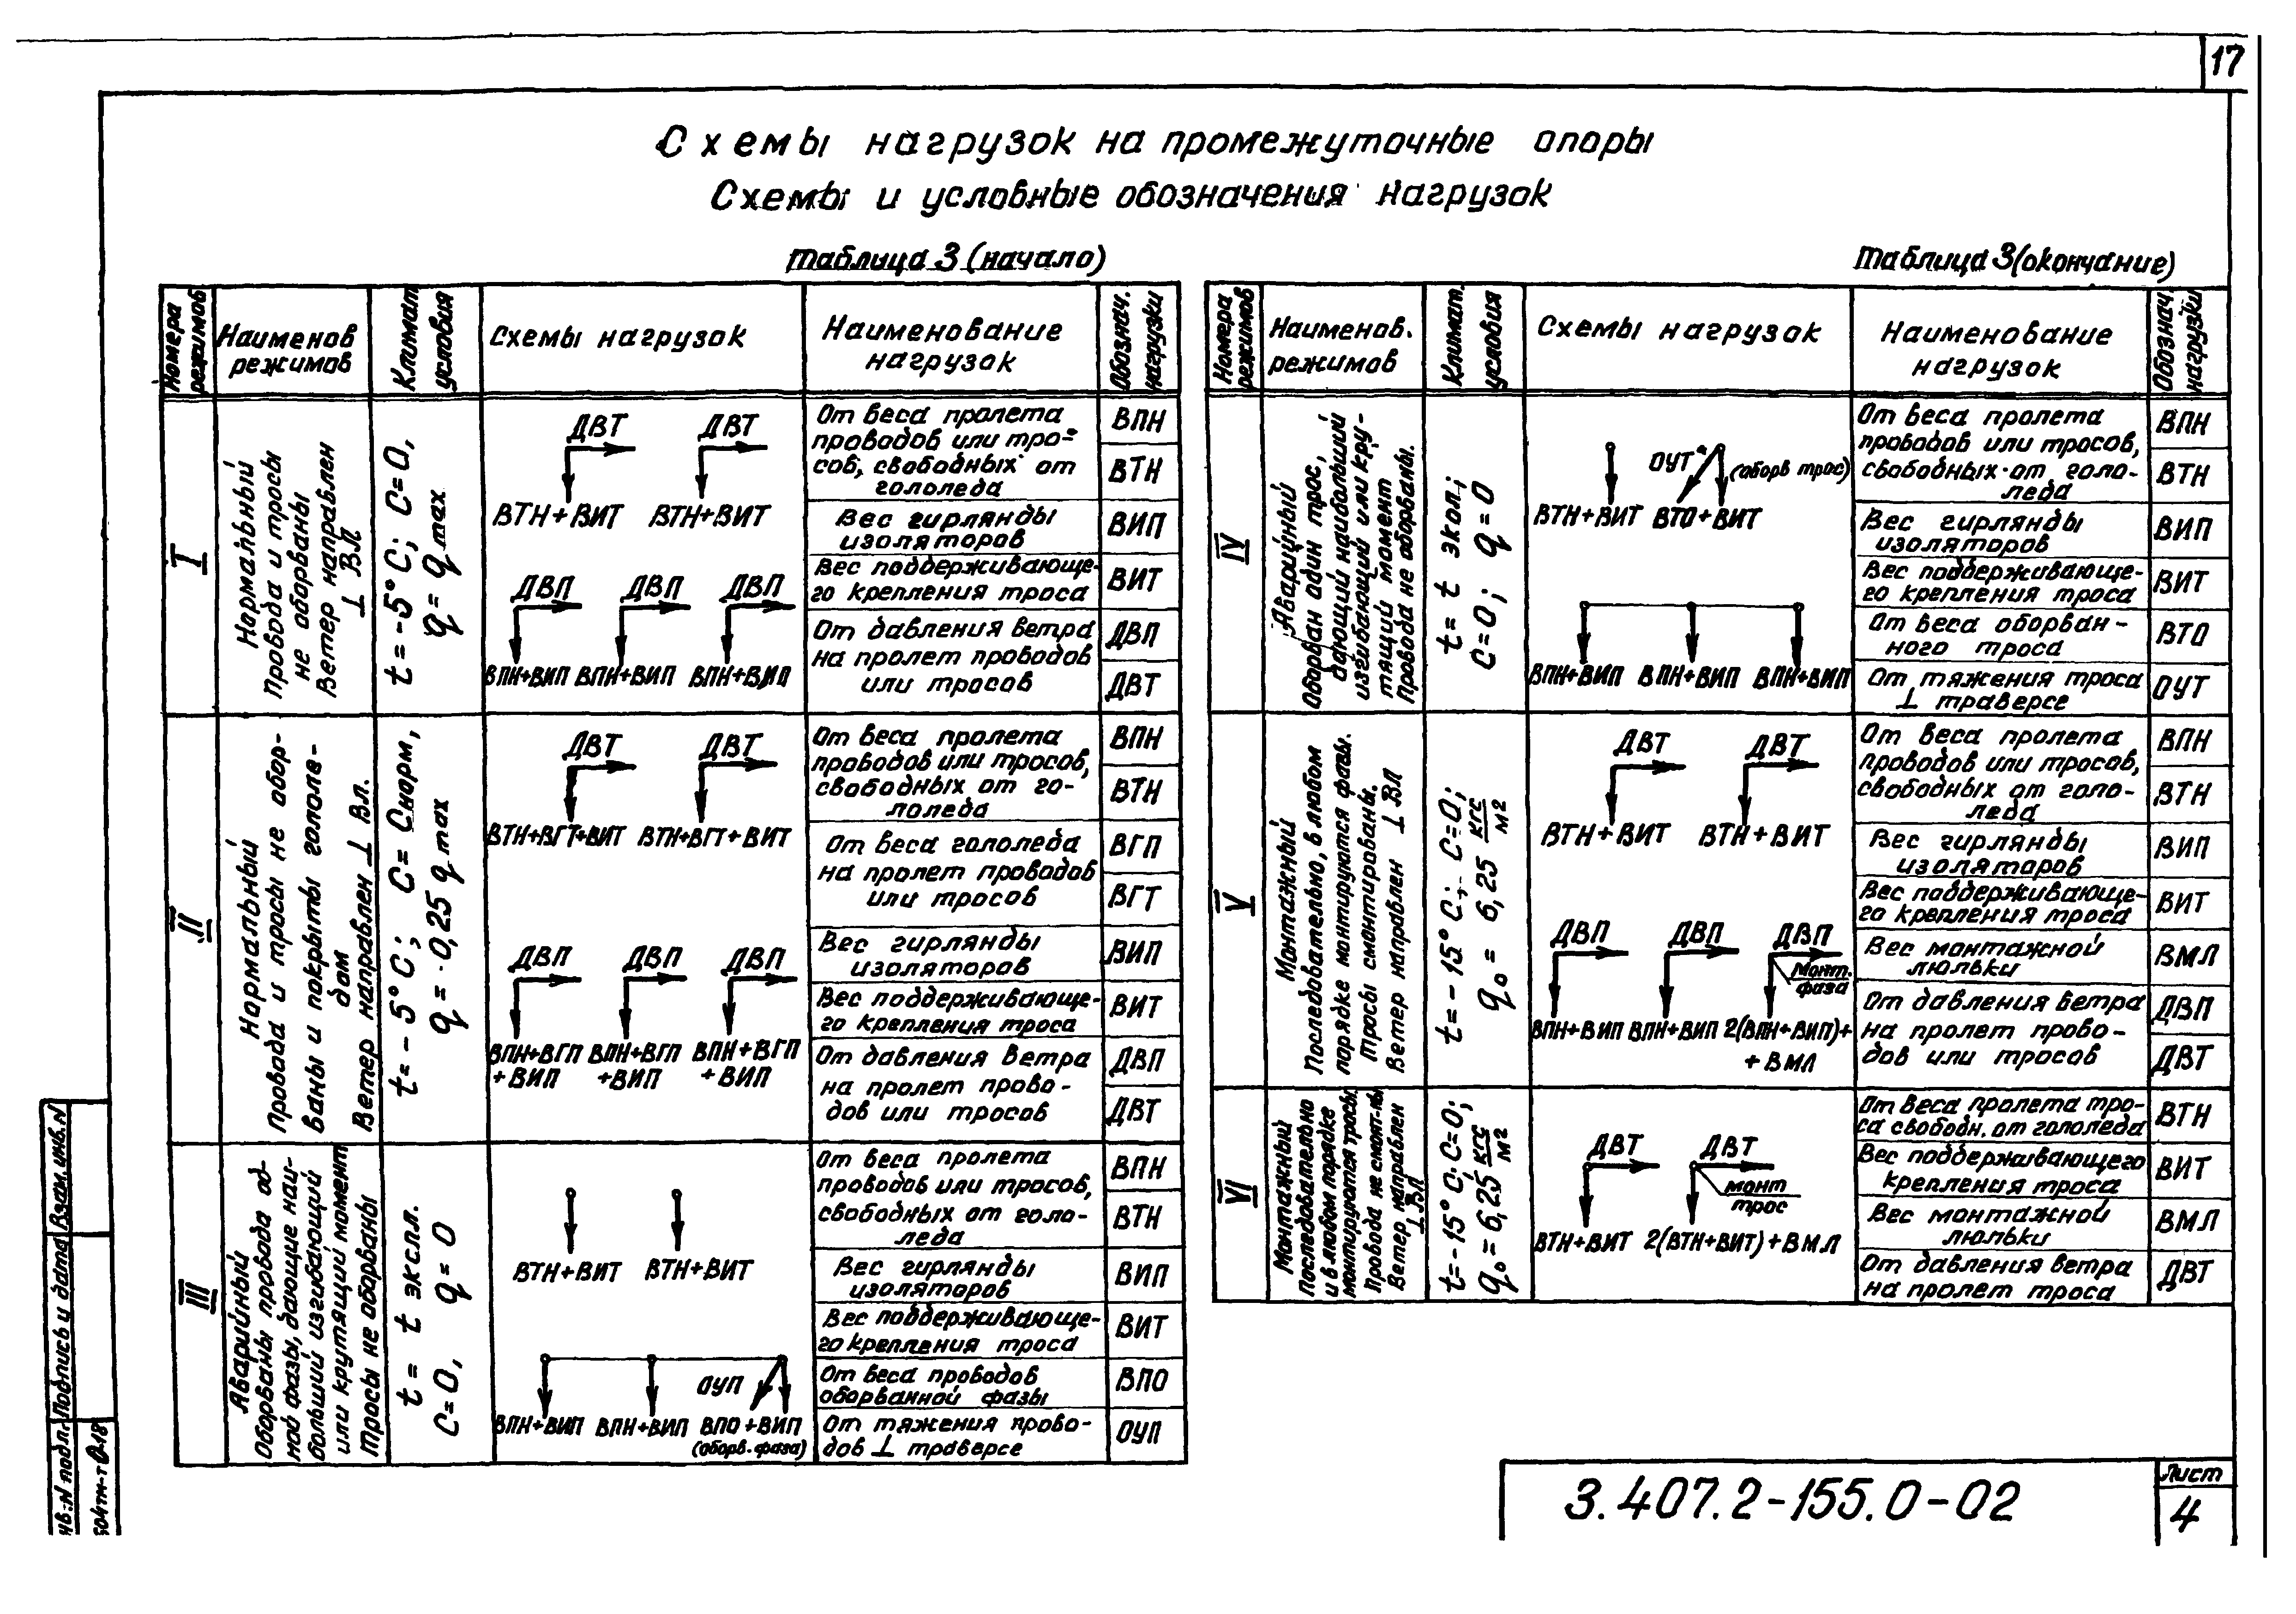 17
Схемы нагрузок на промежуточные опоры
Схемы и условные обозначения нагрузок
Таблица 3 (начало)
Номера режимов
Наименов режимов
Климат условия
Схемы нагрузок
Наименование нагрузок
Обознач. нагрузки
I
Нормальный
Провода и тросы
не оборваны
Ветер направлен
⊥ ВЛ
t=-5°C; C=0,
q=q max
ДВТ ДВТ
ВТН+ВИТ ВТН+ВИТ
ДВП ДВП ДВП
ВПН+ВИП ВПН+ВИП ВПН+ВИП
От веса пролета
проводов или тро-
сов, свободных от
гололеда
ВПН
ВТН
Вес гирлянды
изоляторов
ВИП
Вес поддерживающе-
го крепления троса
ВИТ
От давления ветра
на пролет проводов
или тросов
ДВП
ДВТ
II
Нормальный
Провода и тросы не обор-
ваны и покрыты гололе-
дом
Ветер направлен ⊥ Вл.
t=-5°C; C=Cнорм,
q=0,25 q max
ДВТ ДВТ
ВТН+ВГТ+ВИТ ВТН+ВГТ+ВИТ
ДВП ДВП ДВП
ВПН+ВГП ВПН+ВГП ВПН+ВГП
+ВИП +ВИП +ВИП
От веса пролета
проводов или тросов,
свободных от го-
лоледа
ВПН
ВТН
От веса гололеда
на пролет проводов
или тросов
ВГП
ВГТ
Вес гирлянды
изоляторов
ВИП
Вес поддерживающе-
го крепления троса
ВИТ
От давления ветра
на пролет прово-
дов или тросов
ДВП
ДВТ
III
Аварийный
Оборваны провода од-
ной фазы, дающие наи-
больший изгибающий
или крутящий момент
Тросы не оборваны
t= t экспл.
C=0, q=0
ВТН+ВИТ ВТН+ВИТ
ОУП
ВПН+ВИП ВПН+ВИП ВПО+ВИП
(оборв. фаза)
От веса пролета
проводов или тросов,
свободных от голо-
леда
ВПН
ВТН
Вес гирлянды
изоляторов
ВИП
Вес поддерживающе-
го крепления троса
ВИТ
От веса проводов
оборванной фазы
ВПО
От тяжения прово-
дов ⊥ траверсе
ОУП
Таблица 3 (окончание)
Номера режимов
Наименов. режимов
Климат. условия
Схемы нагрузок
Наименование нагрузок
Обознач. нагрузки
IV
Аварийный
Оборван один трос,
дающий наибольший
изгибающий или кру-
тящий момент
Провода не оборваны.
t= t экспл;
C=0; q=0
ОУТ (оборв трос)
ВТН+ВИТ ВТО+ВИТ
ВПН+ВИП ВПН+ВИП ВПН+ВИП
От веса пролета
проводов или тросов,
свободных от голо-
леда
ВПН
ВТН
Вес гирлянды
изоляторов
ВИП
Вес поддерживающе-
го крепления троса
ВИТ
От веса оборван-
ного троса
ВТО
От тяжения троса
⊥ траверсе
ОУТ
V
Монтажный
Последовательно, в любом
порядке монтируются фазы.
Тросы смонтированы.
Ветер направлен ⊥ Вл
t=-15°C; C=0;
q₀=6,25 кгс/м²
ДВТ ДВТ
ВТН+ВИТ ВТН+ВИТ
ДВП ДВП ДВП
Монт. фаза
ВПН+ВИП ВПН+ВИП 2(ВПН+ВИП)+
+ВМЛ
От веса пролета
проводов или тросов,
свободных от голо-
леда
ВПН
ВТН
Вес гирлянды
изоляторов
ВИП
Вес поддерживающе-
го крепления троса
ВИТ
Вес монтажной
люльки
ВМЛ
От давления ветра
на пролет прово-
дов или тросов
ДВП
ДВТ
VI
Монтажный
Последовательно
и в любом порядке
монтируются тросы
Провода не смонт-ны
Ветер направлен
⊥ Вл
t=-15°C; C=0;
q₀=6,25 кгс/м²
ДВТ ДВТ
монт трос
ВТН+ВИТ 2(ВТН+ВИТ)+ВМЛ
От веса пролета тро-
са свободн. от гололеда
ВТН
Вес поддерживающего
крепления троса
ВИТ
Вес монтажной
люльки
ВМЛ
От давления ветра
на пролет троса
ДВТ
Взам. инв. N
Подпись и дата
нв. N подл.
3.407.2-155.0-02
Лист
4